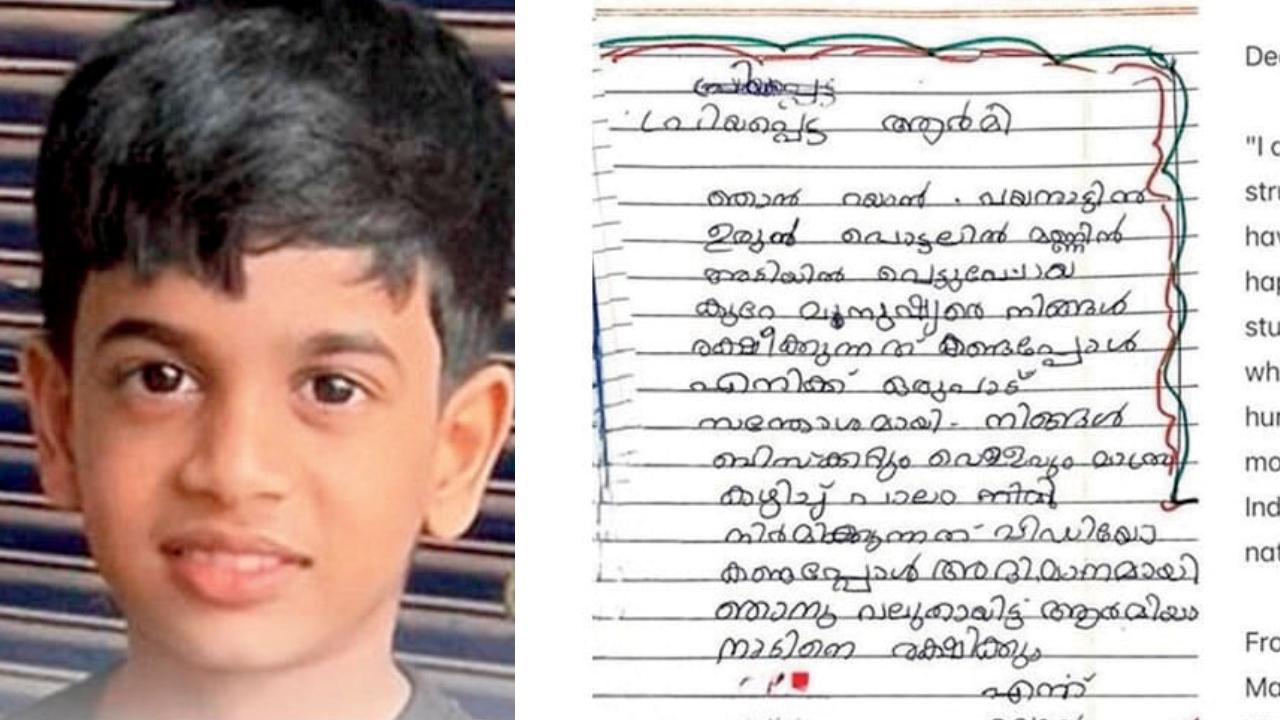 പ്രിയപ്പെട്ട
പ്രിയപ്പെട്ട ആർമി
ഞാൻ റയാൻ. വയനാട്ടിൽ
ഉരുൾ പൊട്ടലിൽ മണ്ണിൻ
അടിയിൽ പെട്ടുപോയ
കുറേ മനുഷ്യരെ നിങ്ങൾ
രക്ഷിക്കുന്നത് കണ്ടപ്പോൾ
എനിക്ക് ഒരുപാട്
സന്തോശമായി. നിങ്ങൾ
ബിസ്ക്കറ്റും വെള്ളവും മാത്രം
കഴിച്ച് പാലം
നിർമിക്കുന്നത് വിഡിയോ
കണ്ടപ്പോൾ അഭിമാനമായി
ഞാനും വലുതായിട്ട് ആർമിയാ
നാടിനെ രക്ഷിക്കും
എന്ന്
De
"I
str
hav
hap
stu
wh
hur
ma
Ind
nat
Fro
Ma